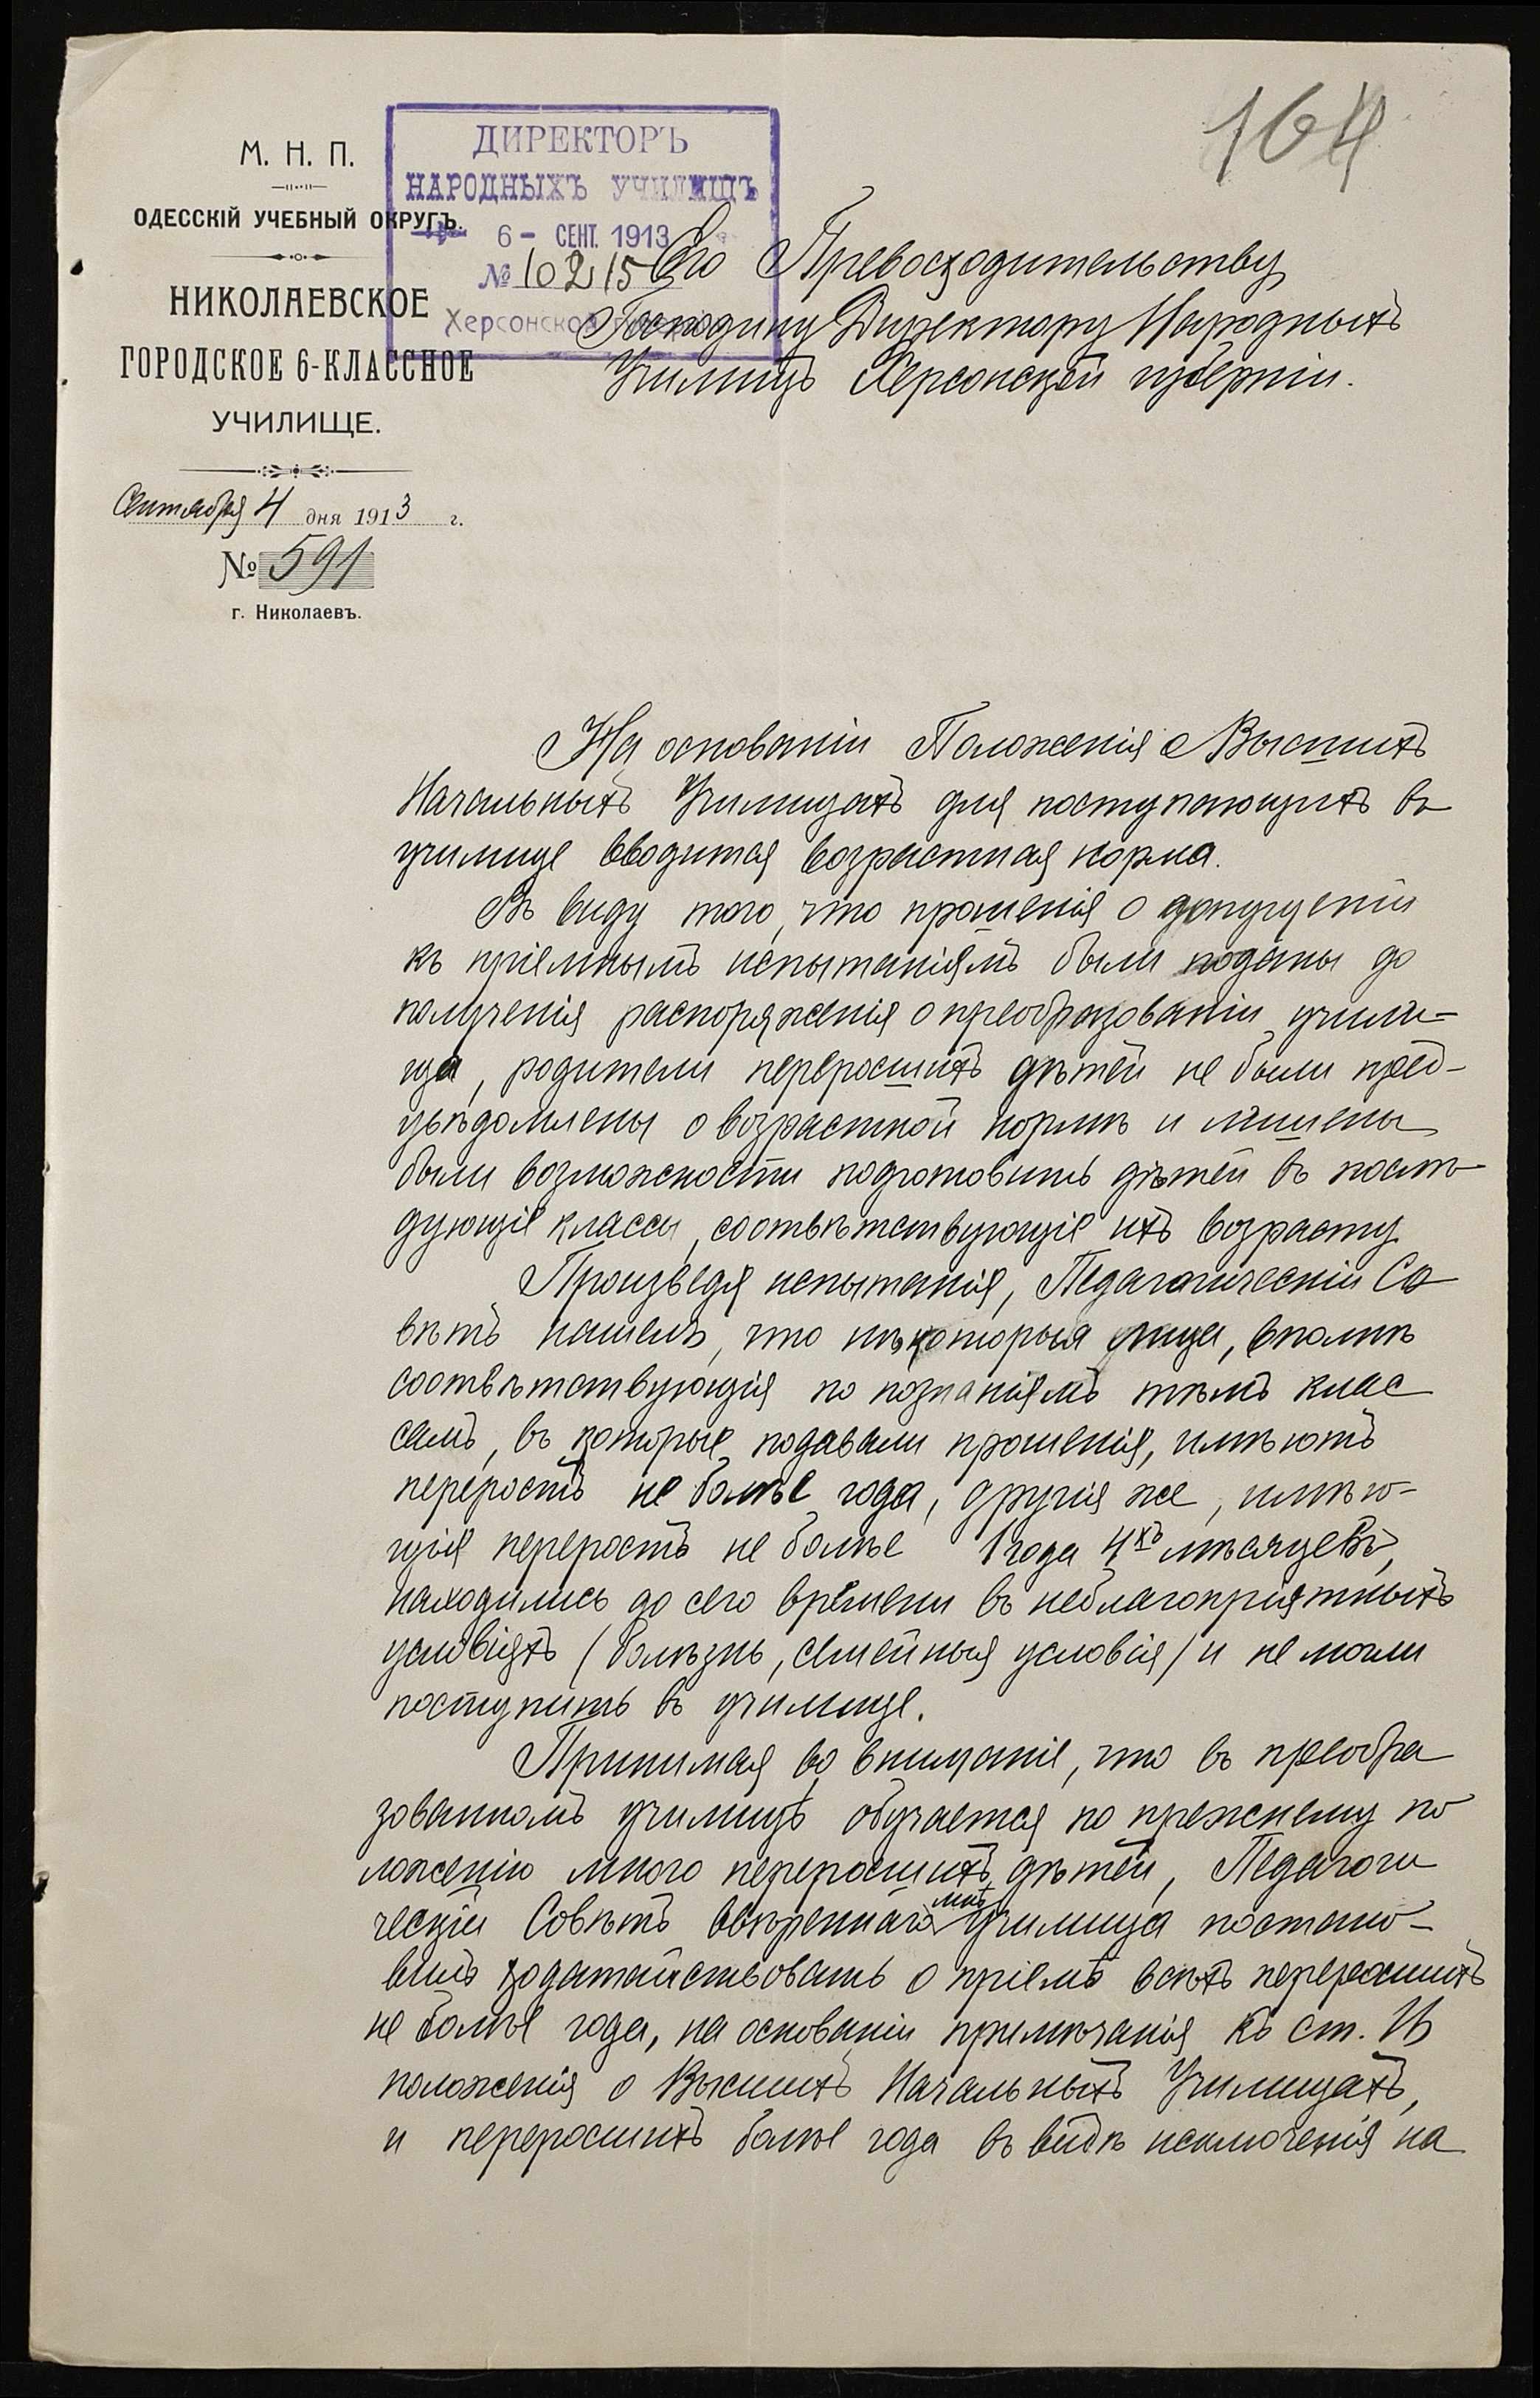 164
М. Н. П.
ОДЕССКІЙ УЧЕБНЫЙ ОКРУГЪ.
НИКОЛАЕВСКОЕ
ГОРОДСКОЕ 6-КЛАССНОЕ
УЧИЛИЩЕ.
Сентября 4 дня 1913 г.
№ 591
г. Николаевъ.
ДИРЕКТОРЪ
НАРОДНЫХЪ УЧИЛИЩЪ
6 - СЕНТ. 1913
№ 10215
Херсонской
Его Превосходительству
Господину Директору Народныхъ
Училищъ Херсонской губерніи.
На основаніи Положенія о Высшихъ
Начальныхъ Училищахъ для поступающихъ въ
училище вводится возрастная норма.
Въ виду того, что прошенія о допущеніи
къ пріемнымъ испытаніямъ были поданы до
полученія распоряженія о преобразованіи учили-
ща, родители переросшихъ дѣтей не были пред-
увѣдомлены о возрастной нормѣ и лишены
были возможности подготовить дѣтей въ послѣ-
дующіе классы, соотвѣтствующіе ихъ возрасту.
Произведя испытанія, Педагогическій Со
вѣтъ нашелъ, что нѣкоторыя лица, вполнѣ
соотвѣтствующія по познаніямъ тѣмъ клас
самъ, въ которые подавали прошенія, имѣютъ
переростъ не болѣе года, другія же, имѣю-
щіе переростъ не болѣе 1 года 4хъ мѣсяцевъ,
находились до сего времени въ неблагопріятныхъ
условіяхъ (болѣзнь, семейныя условія) и не могли
поступить въ училище.
Принимая во вниманіе, что въ преобра
зованномъ училищѣ обучается по прежнему по
ложенію много переросшихъ дѣтей, Педагоги
ческій Совѣтъ ввѣреннаго мнѣ училища постано-
вилъ ходатайствовать о пріемѣ всѣхъ переросшихъ
не болѣе года, на основаніи примѣчанія къ ст.
положенія о Высшихъ Начальныхъ Училищахъ,
и переросшихъ болѣе года въ видѣ исключенія на